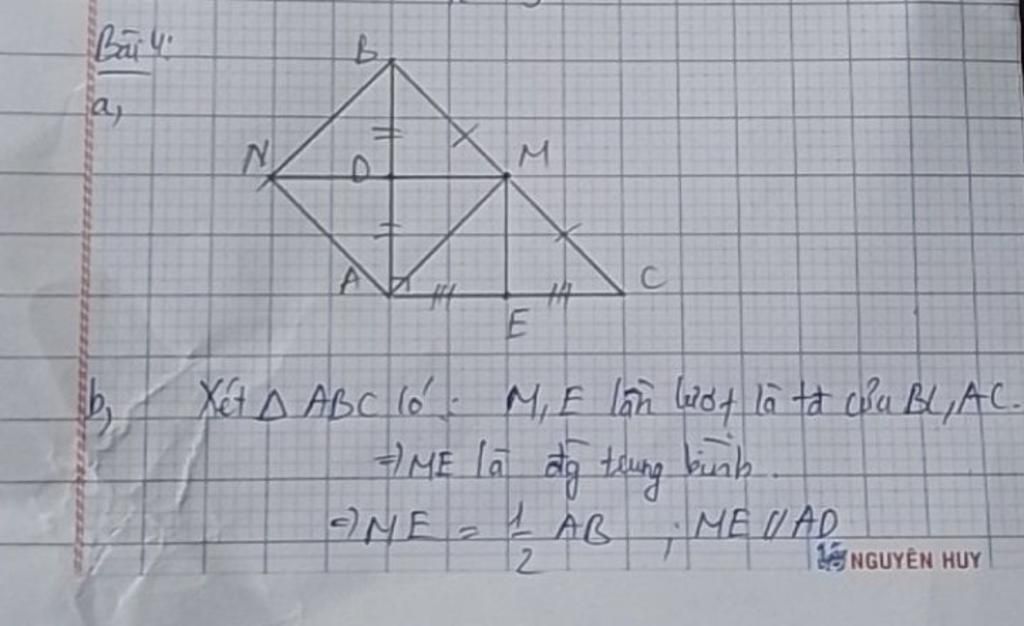 Bài 4:
a,
B
N
D
M
A
C
E
b, Xét Δ ABC có: M, E lần lượt là tđ của BC, AC.
⇒ ME là đg trung bình.
⇒ ME = 1/2 AB ; ME // AD
NGUYÊN HUY